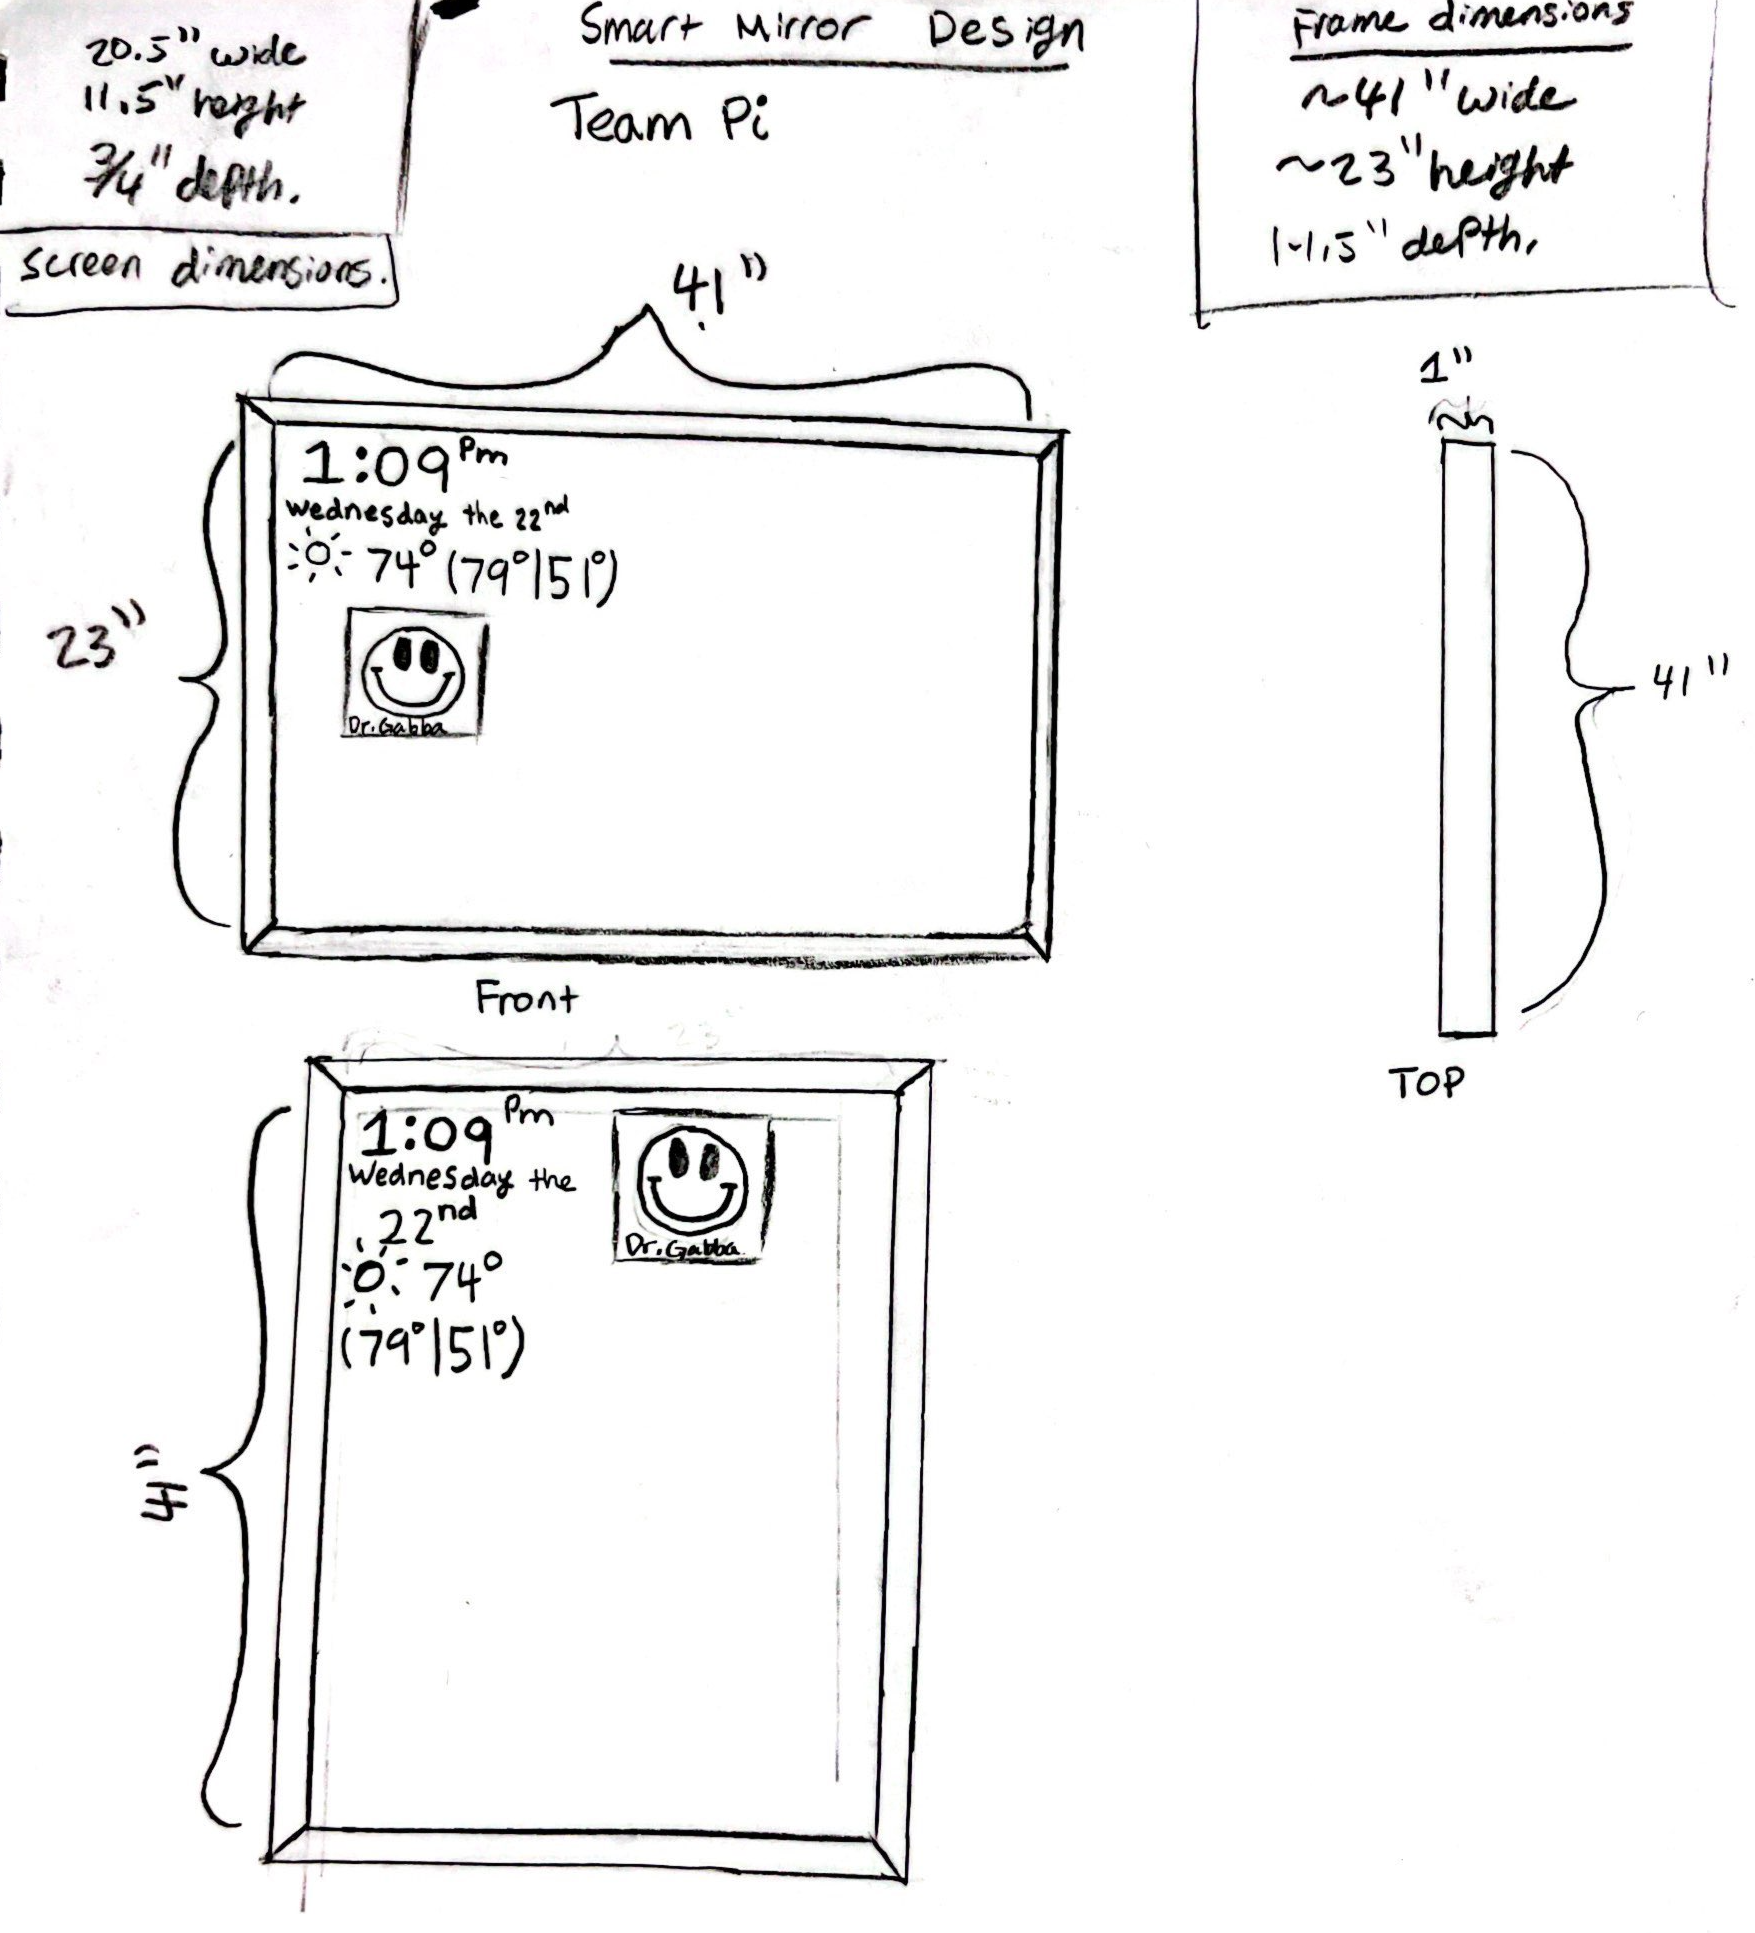 20.5" wide
11.5" height
3/4" depth.
Screen dimensions.
Smart Mirror Design
Team Pi
Frame dimensions
~41" wide
~23" height
1-1.5" depth.
41"
23"
1:09 Pm
Wednesday the 22nd
74° (79°|51°)
Dr. Gabba
Front
1"
41"
TOP
23
1:09 Pm
Wednesday the
22nd
74°
(79°|51°)
Dr. Gabba
41"